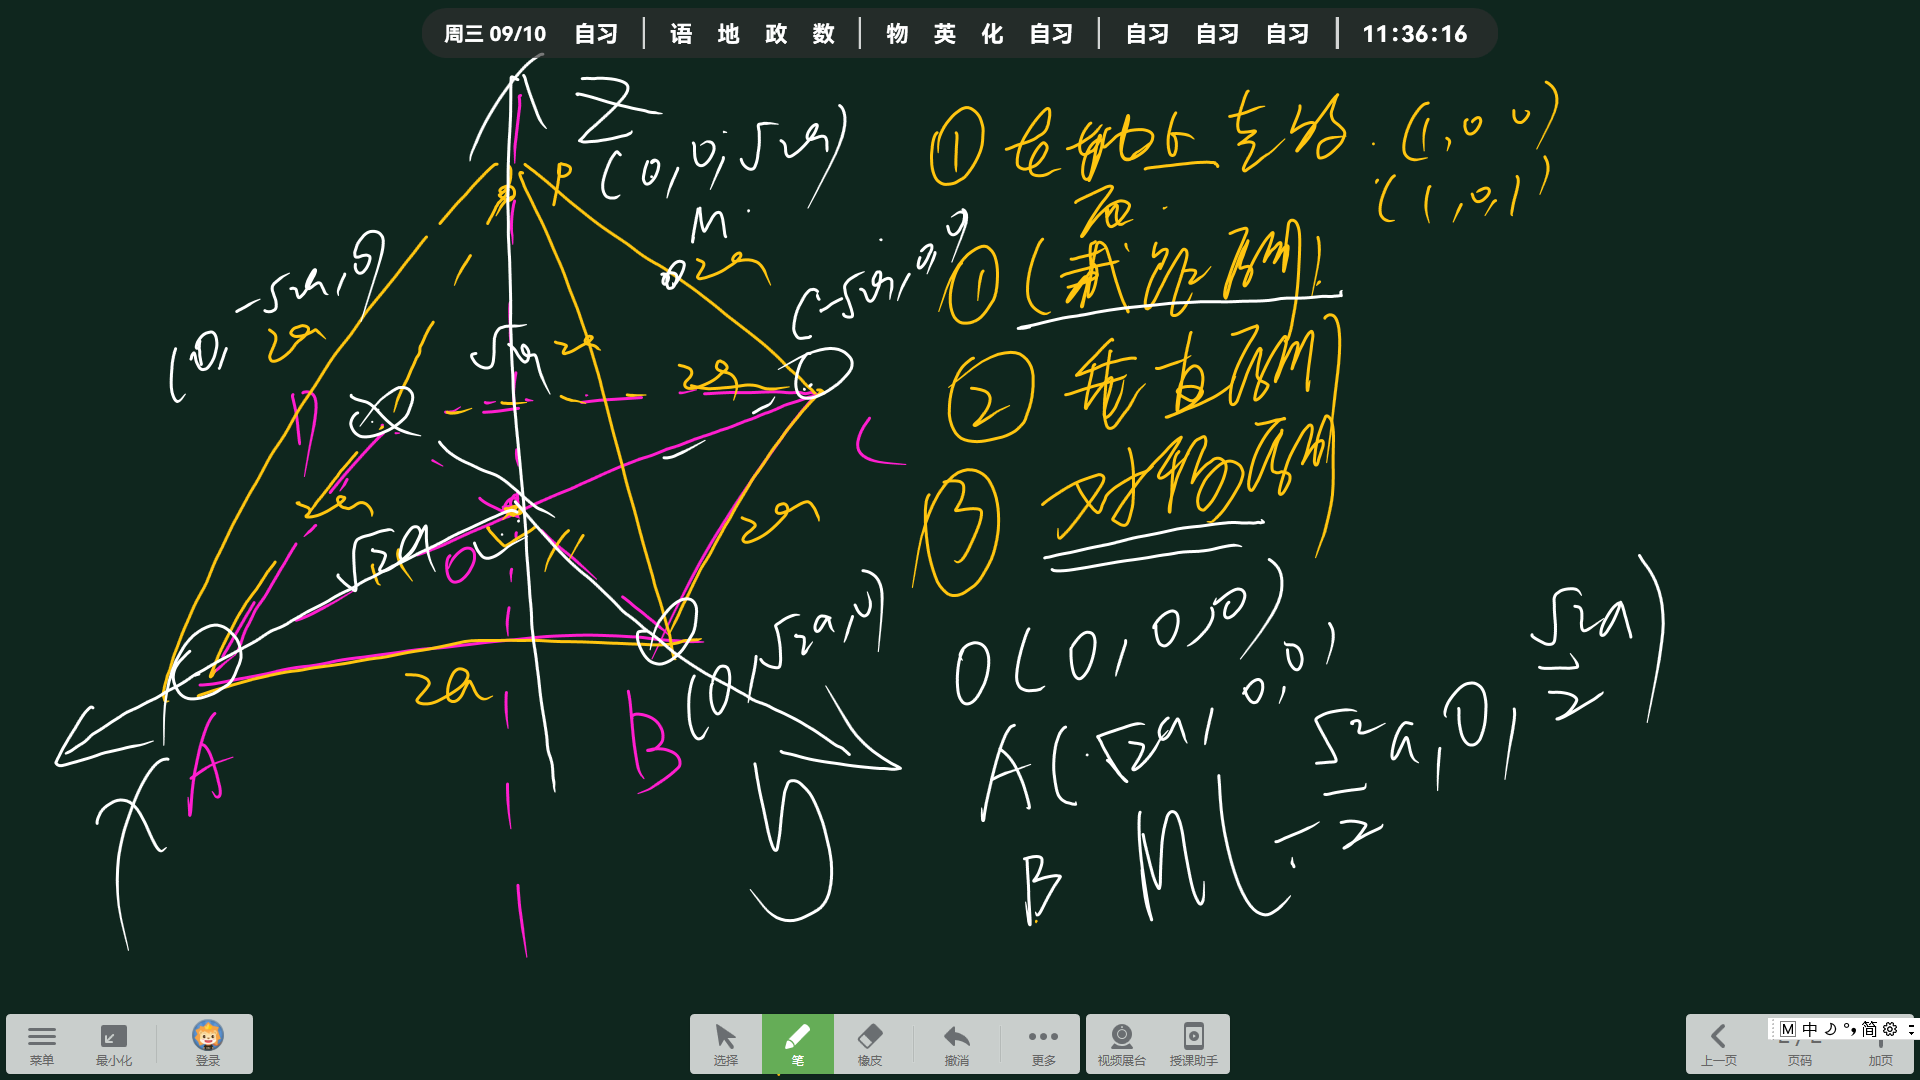 周三 09/10 自习 | 语 地 政 数 | 物 英 化 自习 | 自习 自习 自习 | 11:36:16
Z
(0,0,√2a)
P
M
2a
(0,-√2a,0)
2a
(-√2a,0,0)
√2a
2a
2a
D
C
2a
2a
√2a
O
2a
(0,√2a,0)
A
B
x
y
① 在轴上 的 (1,0 0)
面 (1,0,1)
① (截距 法)
② 垂直
③ 对称
O(0,0,0)
A(√2a,0,0)
B
M(-√2/2 a,0,√2a/2)
菜单 最小化 登录
选择 笔 橡皮 撤消 更多
视频展台 授课助手
上一页 页码 加页
M 中 简